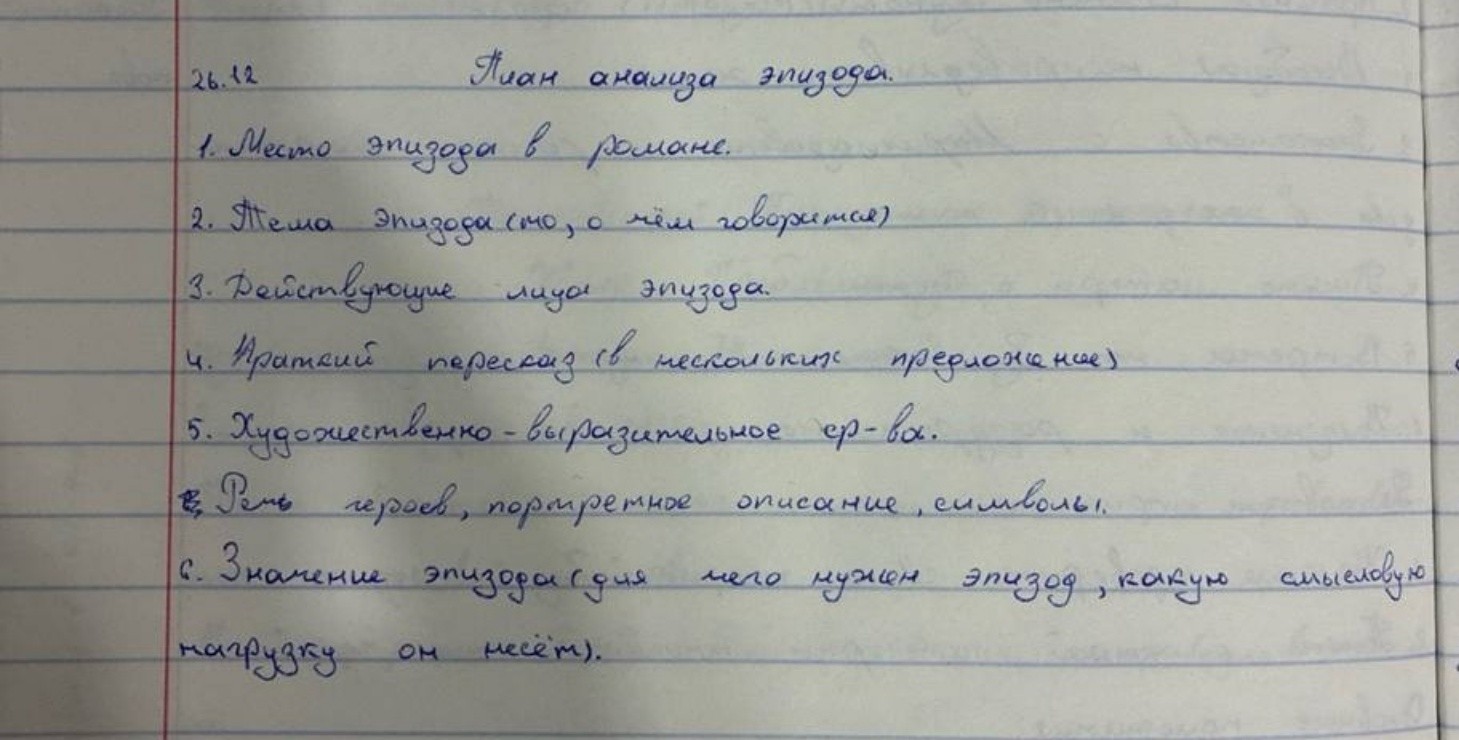 26.12 План анализа эпизода.
1. Место эпизода в романе.
2. Тема эпизода (то, о чём говорится)
3. Действующие лица эпизода.
4. Краткий пересказ (в нескольких предложение)
5. Художественно-выразительное ср-ва.
Речь героев, портретное описание, символы.
6. Значение эпизода (для чего нужен эпизод, какую смысловую
нагрузку он несёт).